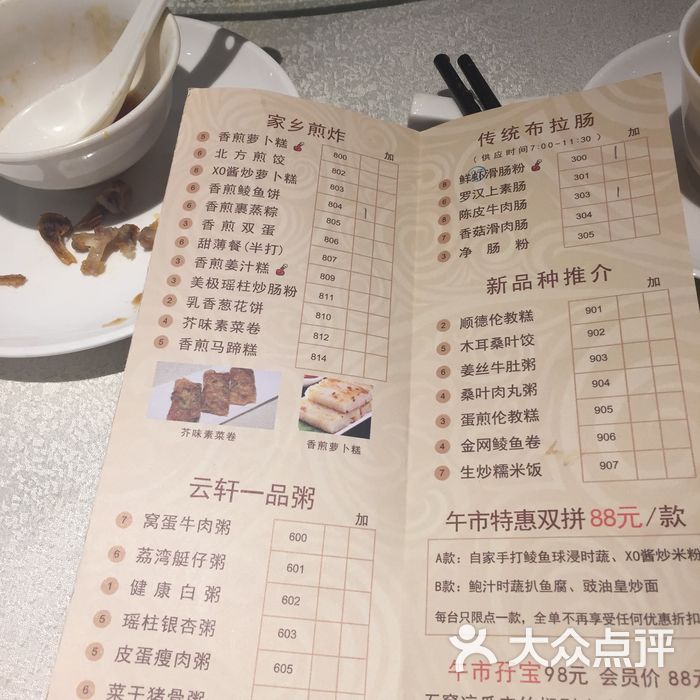 家乡煎炸
加
5 香煎萝卜糕 800
6 北方煎饺 802
8 XO酱炒萝卜糕 803
6 香煎鲮鱼饼 804
6 香煎裹蒸粽 805
3 香煎双蛋 806
6 甜薄餐(半打) 807
3 香煎姜汁糕 809
3 美极瑶柱炒肠粉 811
2 乳香葱花饼 810
4 芥味素菜卷 812
5 香煎马蹄糕 814
芥味素菜卷
香煎萝卜糕
云轩一品粥
加
7 窝蛋牛肉粥 600
6 荔湾艇仔粥 601
1 健康白粥 602
5 瑶柱银杏粥 603
5 皮蛋瘦肉粥 605
6 菜干猪骨粥
传统布拉肠
(供应时间7:00-11:30)
加
8 鲜虾滑肠粉 300
6 罗汉上素肠 301
8 陈皮牛肉肠 303
5 香菇滑肉肠 304
3 净肠粉 305
新品种推介
加
2 顺德伦教糕 901
5 木耳桑叶饺 902
6 姜丝牛肚粥 903
4 桑叶肉丸粥 904
3 蛋煎伦教糕 905
4 金网鲮鱼卷 906
7 生炒糯米饭 907
午市特惠双拼88元/款
A款：自家手打鲮鱼球浸时蔬、XO酱炒米粉
B款：鲍汁时蔬扒鱼腐、豉油皇炒面
每台只限点一款，全单不再享受任何优惠折扣
午市孖宝98元 会员价 88
大众点评